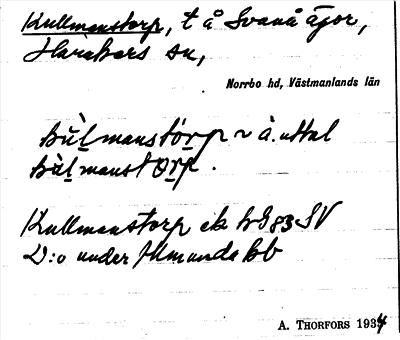 Kullmanstorp, t å Svanå ägor,
Haråkers sn,
Norrbo hd, Västmanlands län
kùl̲manstór̲p ~ ä. uttal
kùl̲manst r̲p.
Kullmanstorp ek bG 83 SV
D:o under kb
A. THORFORS 1934